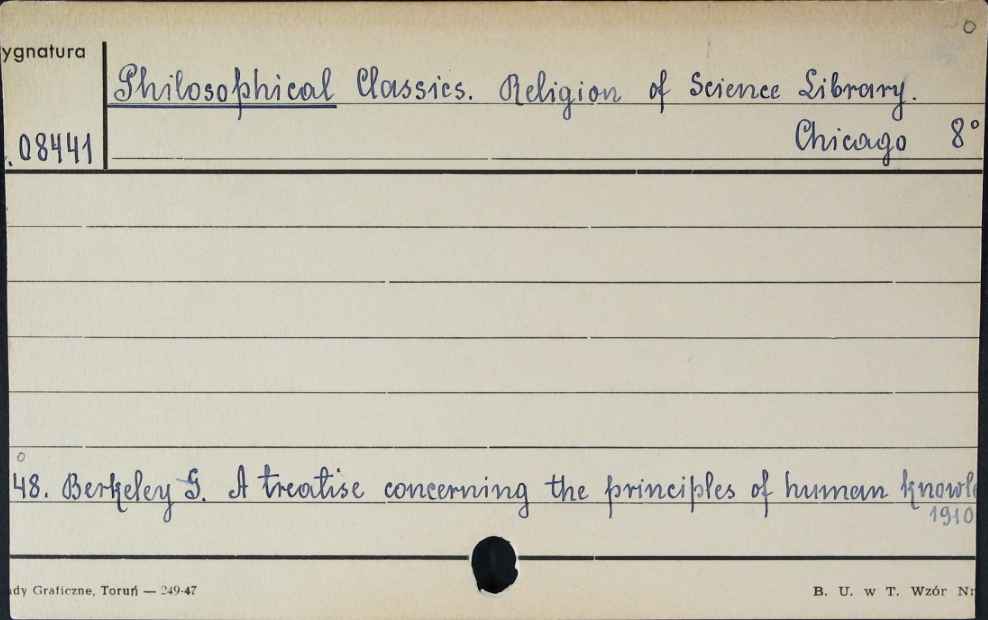 o
ygnatura
Philosophical Classics. Religion of Science Library.
.08441
Chicago 8°
o
48. Berkeley G. A treatise concerning the principles of human knowle
1910
dy Graficzne, Toruń — 249-47
B. U. w T. Wzór Nr